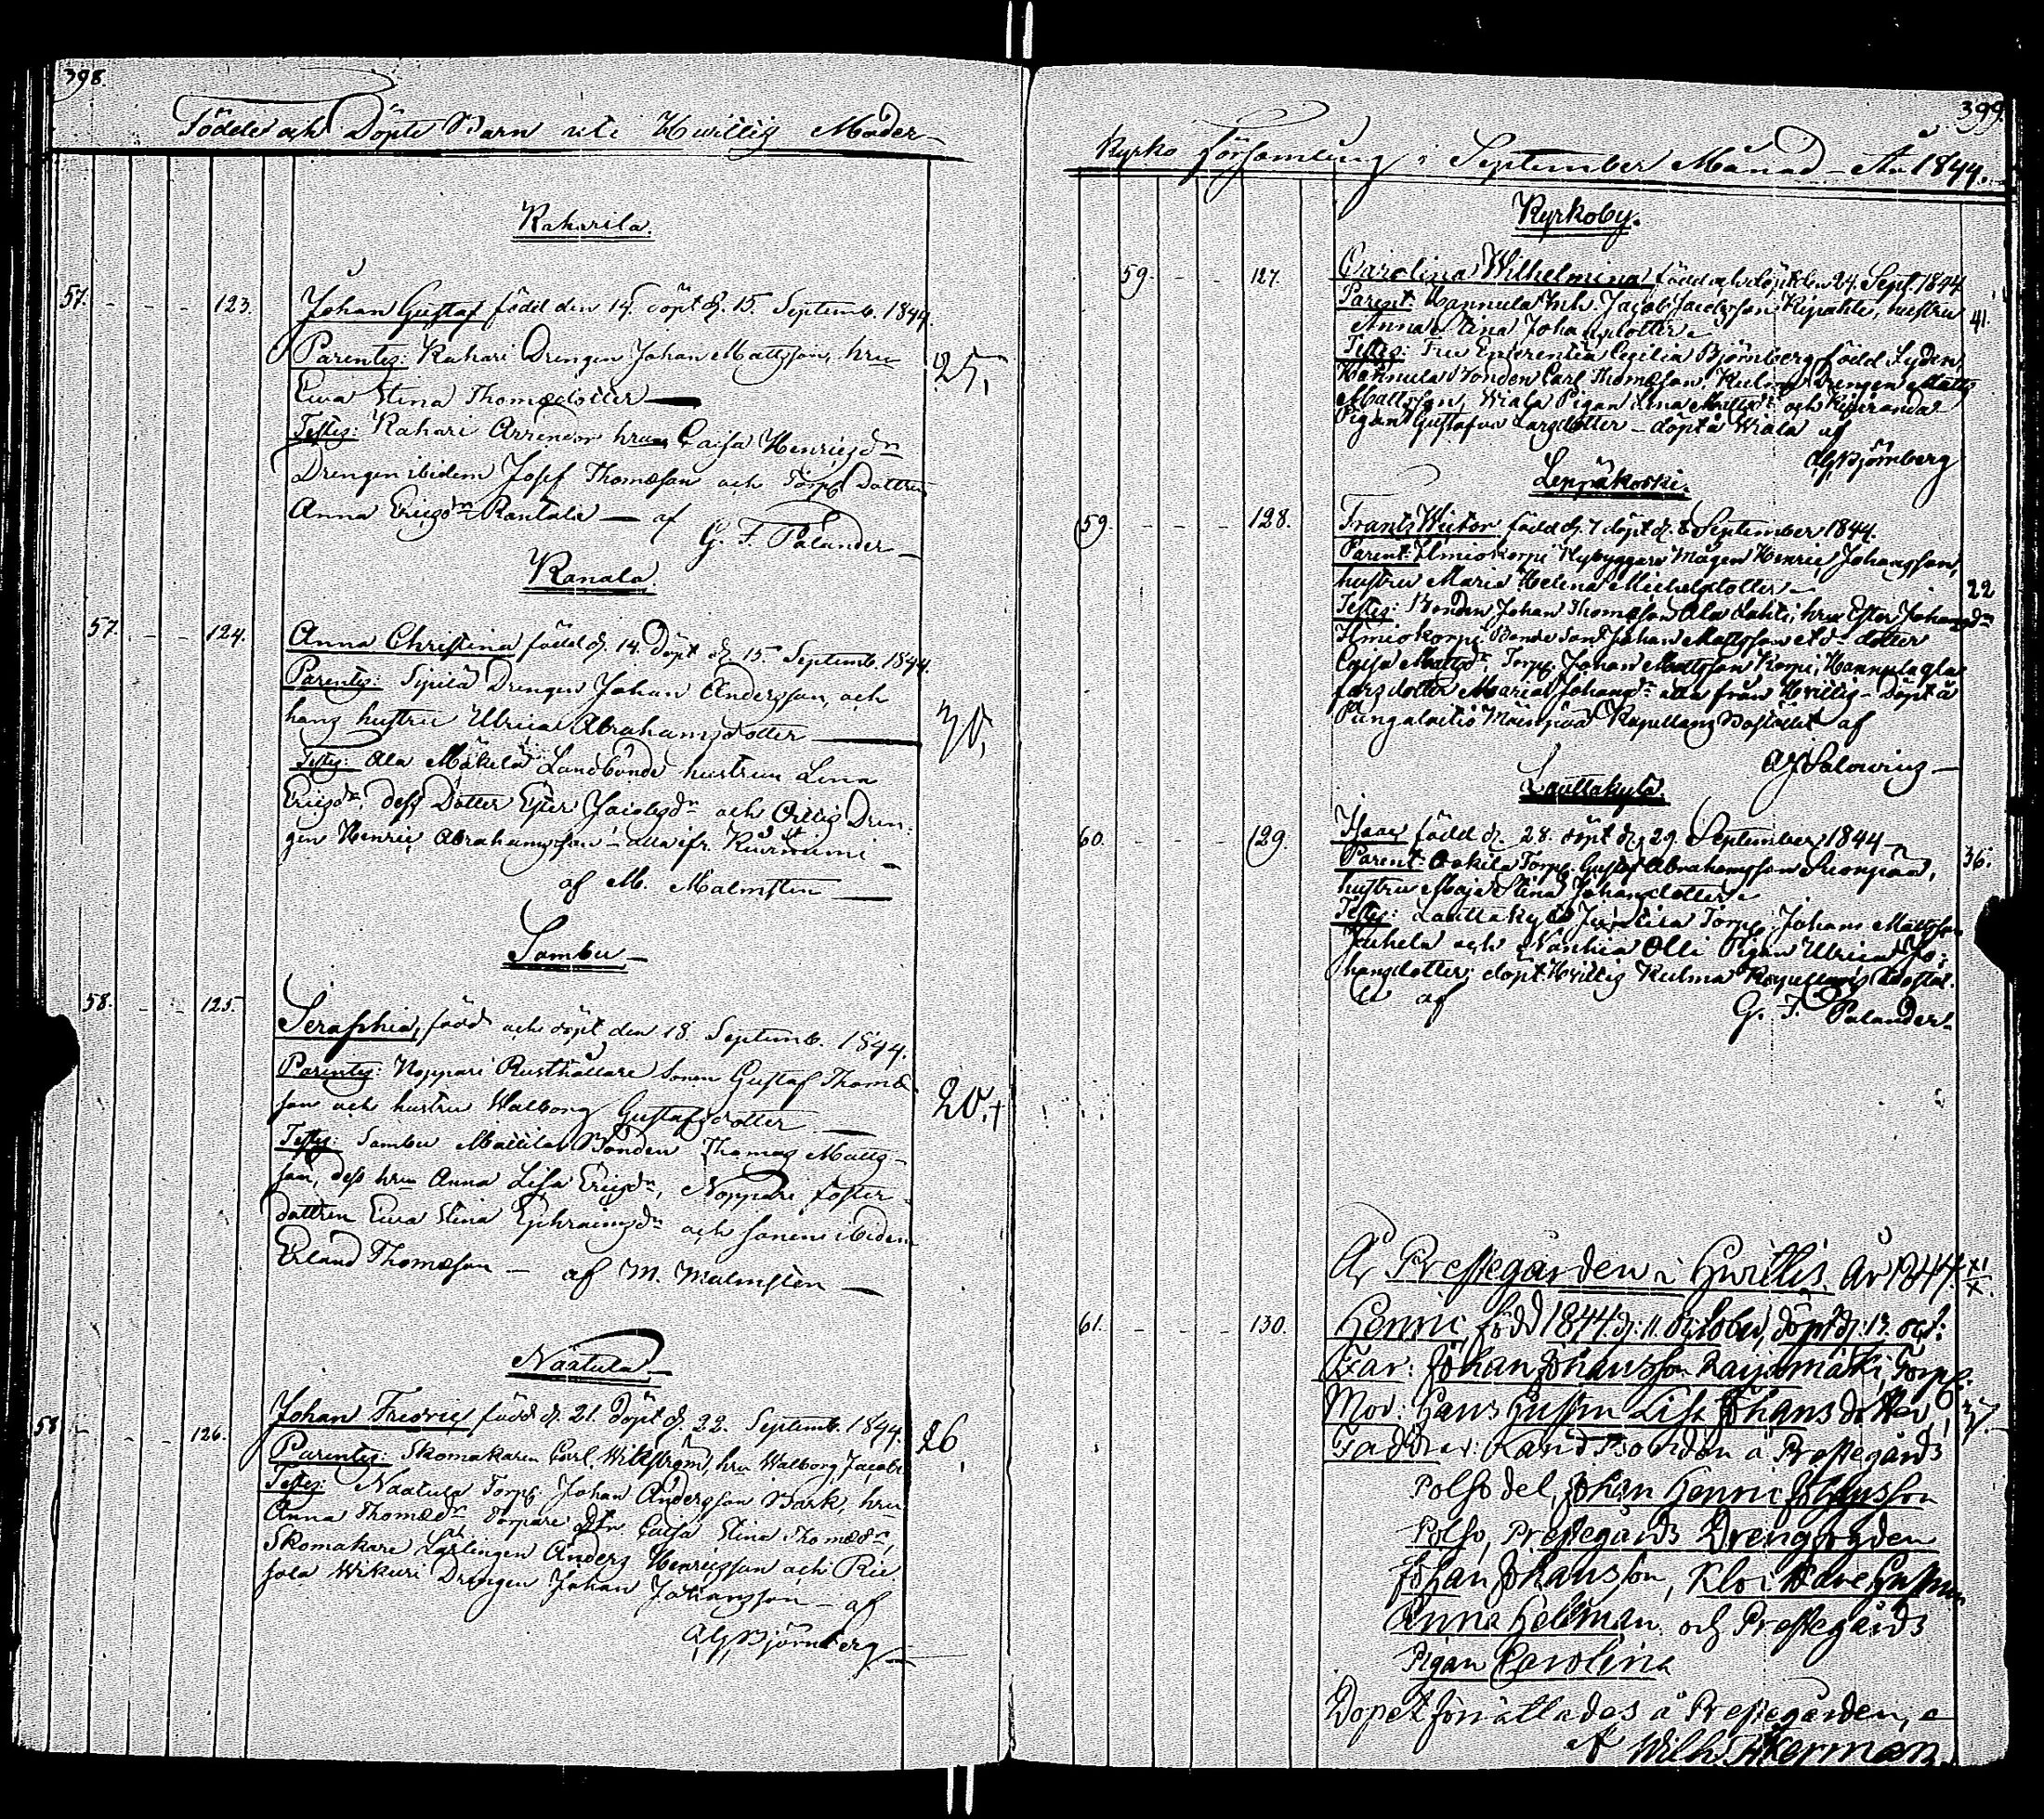 398.
Födde och Döpte Barn uti Hvittis Moder-
Raharila.
57. - - - 123. Johan Gustaf född den 14. döpt d. 15. Septemb. 1844.
Parentes: Rahari Drengen Johan Mattsson, hru
Ewa Stina Thomædotter — 25.
Testes: Rahari Arrendor hrun Caisa Henricsdr
Drengen ibidem Josef Thomæson och Torp. Dottren
Anna Ericsdr Rantala — af
G. F. Palander —
Ranala.
57. - - - 124. Anna Christina född d. 14. Döpt d. 15. Septemb. 1844.
Parentes: Sipilä Drengen Johan Andersson, och
hans hustru Ulrica Abrahamsdotter — 30.
Testes: Ala Mäkelä Landbonde hustrun Lena
Ericsdr, dess Dotter Ester Jacobsdr och Ollis Dren-
gen Henric Abrahamsson — alla ifr.
af M. Malmsten —
Sambu —
58. - - 125. Seraphia, född och döpt den 18. Septemb. 1844.
Parentes: Noppari Rusthållare Sonen Gustaf Thomæ
son och hustru Walborg Gustafsdotter — 20.+
Testes: Sambu Mattila Bonden Thomas Matts-
son, dess hru Anna Lisa Ericsdr, Noppari foster-
dottren Ewa Stina Ephraimsdr och sonen ibidem
Erland Thomæson — af M. Malmsten —
Naatula —
58. - - - 126. Johan Fredric född d. 21. Döpt d. 22. Septemb. 1844. 26.
Parentes: Skomakaren Carl Wikström, hru Walborg Jacobs
Testes: Naatula Torp. Johan Andersson Bark, hru
Anna Thomædr Torpare Dtr Caisa Stina Thomædr,
Skomakare Lärlingen Anders Henricsson och Rie
sola Wikuri Drengen Johan Johansson — af
AG Björnberg —
399.
Kyrko Församling i September Månad — År 1844.
Kyrkoby.
59. - - 127. Carolina Wilhelmina född och döpt den 24. Sept. 1844
Parent: Hannula Inh. Jacob Jacobsson hustru 41.
Anna Stina Johansdotter
Testes: Fru Emerentia Cecilia Björnberg, född Lydén,
Hannula Bonden Carl Thomæson, Kulma Drengen Matts
Mattsson, Wiala Pigan Lena Mattsdr och
Pigan Gustafva Larsdotter — döpt å Wiala af
AG Björnberg
Leppäkoski.
59. - - - 128. Frants Victor född d. 7 döpt d. 8 September 1844.
Parent: Ilmiokorpi Nybyggare Mågen Henric Johansson,
hustru Maria Helena Michelsdotter — 22
Testes: Bonden Johan Thomæson Ala Lahti, hru Ester Johansdr
Ilmiokorpi Bonde Son Johan Mattsson dotter
Caisa Mattsdr, Torp. Johan Mattsson Korpi, Hannula
Larsdotter Maria Johansdr alla från Hvittis — Döpt å
Pungalaitio Kapellans Bostället af
AJ Salovius —
Lauttakylä.
60. - - - 129. Isaac född d. 28. döpt d. 29. September 1844 —
Parent: Torp. Gustaf Abrahamsson 36.
hustru Maja Stina Johansdotter
Testes: Lauttakylä Torp. Johan Mattsson
Juhela och Nanhia Olli Pigan Ulrica Jo-
hansdotter; döpt Hvittis Kulma Kapellans Bostäl-
le af
G. F. Palander.
Ifr Prestegården i Hvittis År 1844. XI X.
61. - - - 130. Henric, född 1844 d: 11 october, döpt d: 13. oct:
Far: Johan Johansson Raijomäki, Torp.
Mor: Hans Hustru Lisa Johansdotter, 37.
Faddrar: Landbonden å Prestegårds
Polso del, Johan Henric Johansson
Polso, Prestegårds Drengfogden
Johan Johansson, Klockare Hustrun
Anna Hellman, och Prestegårds
Pigan Carolina
Dopet förrättades å Prestegården,
af Wilh. Åkerman.